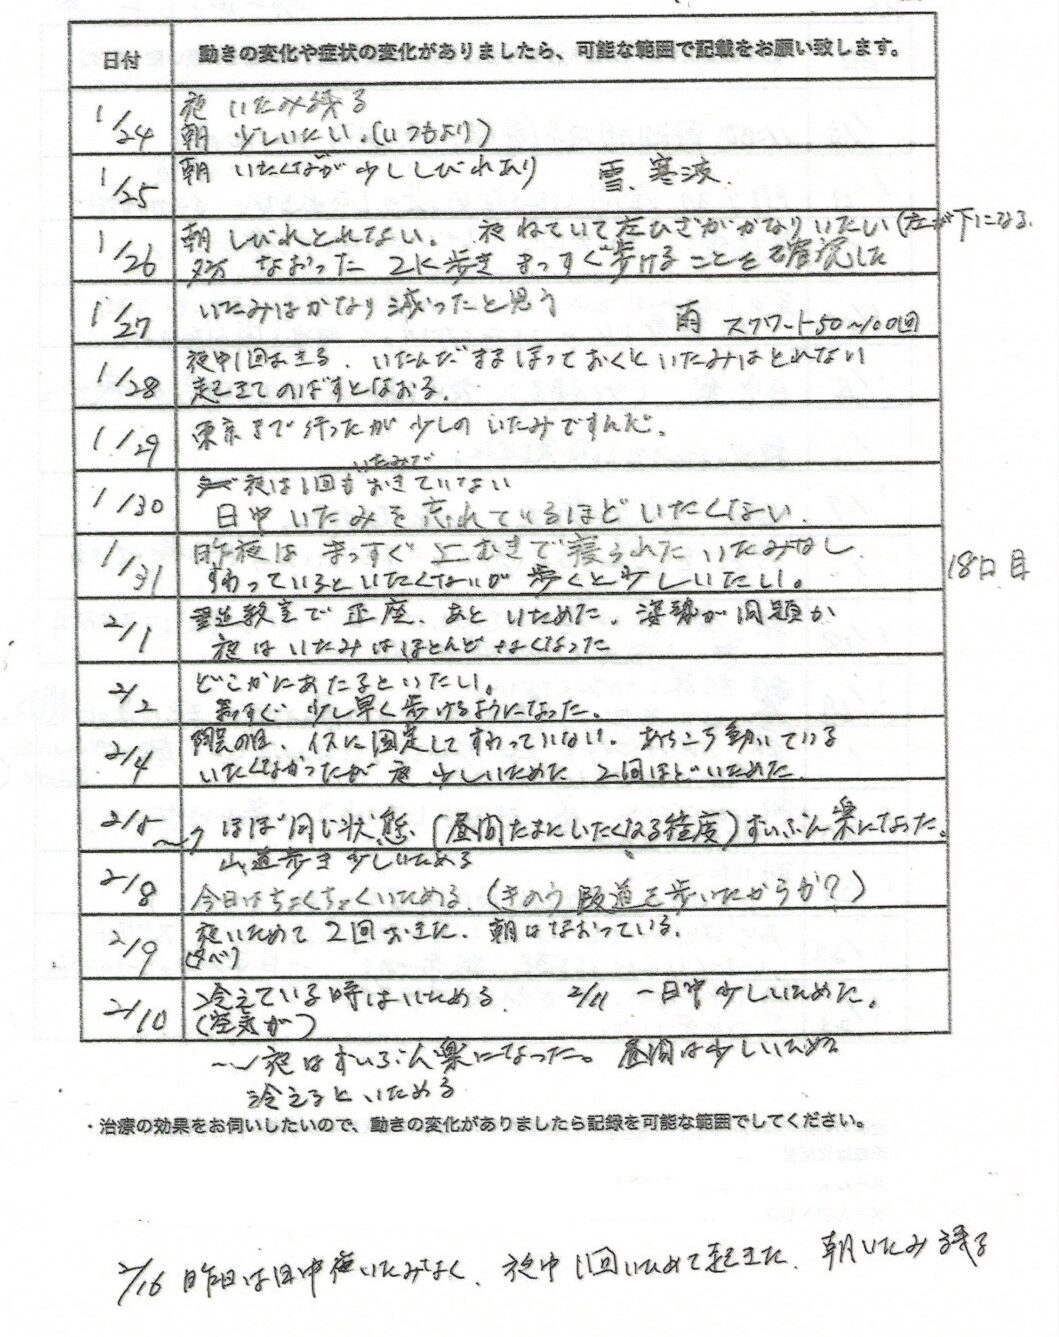 日付
動きの変化や症状の変化がありましたら、可能な範囲で記載をお願い致します。
1/24
夜 いたみ残る
朝 少しいたい。(いつもより)
1/25
朝 いたくないが少ししびれあり 雪、寒波、
1/26
朝 しびれとれない。 夜ねていて左ひざがかなりいたい(左が下になる、
なおった 2K歩き まっすぐ歩けることを確認した
1/27
いたみはかなり減ったと思う
雨 スクワート50〜100回
1/28
夜中1回おきる、いたんだままほっておくといたみはとれない
起きてのばすとなおる。
1/29
東京まで行ったが少しのいたみですんだ。
1/30
いたみで
夜は1回もおきていない
日中いたみを忘れているほどいたくない。
1/31
昨夜はまっすぐ上むきで寝られたいたみなし
すわっているといたくないが歩くと少しいたい。
18日目
2/1
書道教室で正座、あといためた。姿勢が問題か
夜はいたみはほとんどなくなった
2/2
どこかにあたるといたい。
まっすぐ 少し早く歩けるようになった。
2/4
陶芸の日、イスに固定してすわっていない。あちこち動いている
いたくなかったが夜少しいためた 2回ほどいためた
2/5〜7
ほぼ同じ状態(昼間たまにいたくなる程度)ずいぶん楽になった。
2/8
山道歩き少しいためる
今日はちょくちょくいためる(きのう坂道を歩いたからか?)
2/9
夜いためて2回おきた、朝はなおっている。
(夕べ)
2/10
冷えている時はいためる 2/11 一日中少しいためた。
(空気が)
〜夜はずいぶん楽になった。昼間は少しいためる
冷えるといためる
・治療の効果をお伺いしたいので、動きの変化がありましたら記録を可能な範囲でしてください。
2/16 昨日は日中夜いたみなく、夜中1回いためて起きた、朝いたみ残る